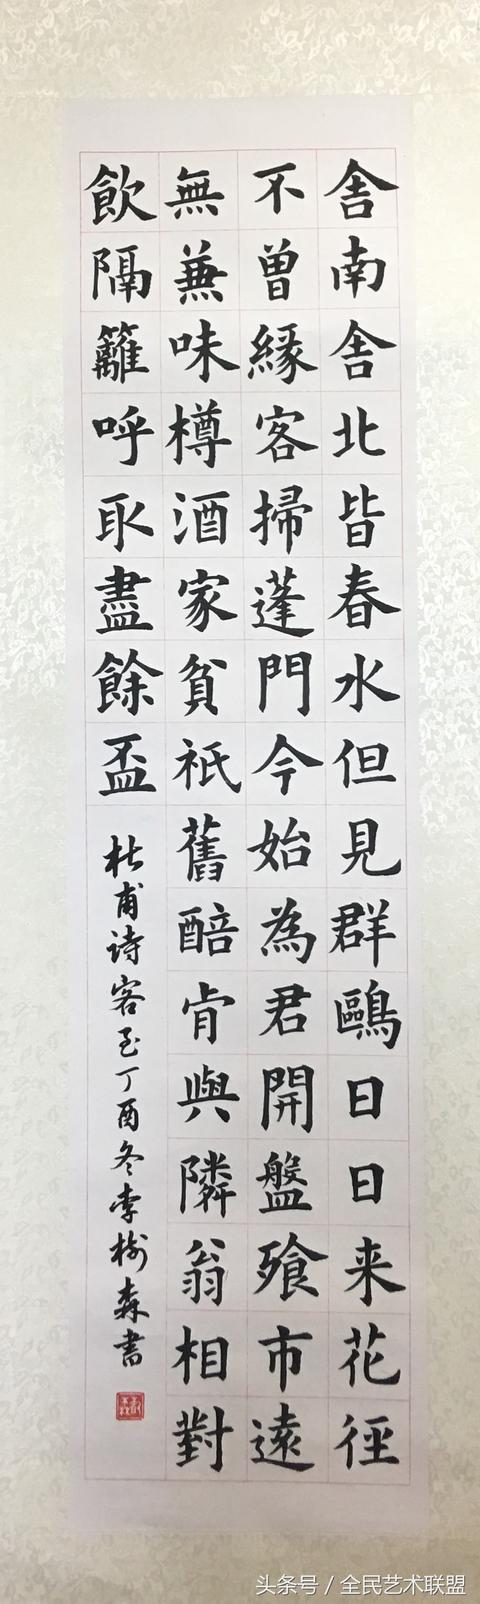 舎南舎北皆春水但見群鷗日日来花徑
不曾緣客掃蓬門今始為君開盤飱市遠
無兼味樽酒家貧祇舊醅肯與隣翁相對
飲隔籬呼取盡餘盃
杜甫诗客至丁酉冬李樹森書
头条号 / 全民艺术联盟